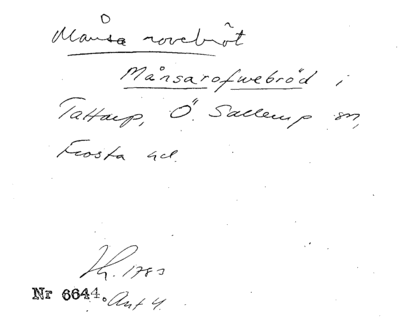 Månsa rovebröt
Månsarofwebröd i
Tattarp, Ö. Sallerup sn,
Frosta hd.
Th. 1783
Nr 6644. Ant 4.